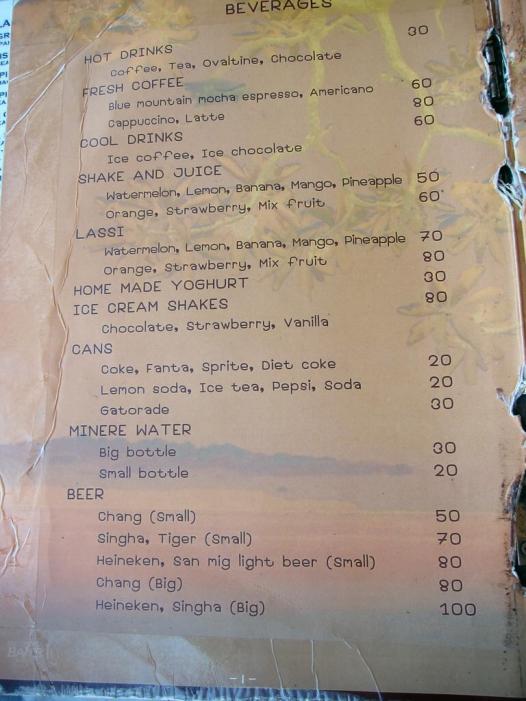 BEVERAGES
HOT DRINKS 30
Coffee, Tea, Ovaltine, Chocolate
FRESH COFFEE
Blue mountain mocha espresso, Americano 60
Cappuccino, Latte 80
COOL DRINKS 60
Ice coffee, Ice chocolate
SHAKE AND JUICE
Watermelon, Lemon, Banana, Mango, Pineapple 50
Orange, Strawberry, Mix fruit 60
LASSI
Watermelon, Lemon, Banana, Mango, Pineapple 70
Orange, Strawberry, Mix fruit 80
HOME MADE YOGHURT 30
ICE CREAM SHAKES 80
Chocolate, Strawberry, Vanilla
CANS
Coke, Fanta, Sprite, Diet coke 20
Lemon soda, Ice tea, Pepsi, Soda 20
Gatorade 30
MINERE WATER
Big bottle 30
Small bottle 20
BEER
Chang (Small) 50
Singha, Tiger (Small) 70
Heineken, San mig light beer (Small) 80
Chang (Big) 80
Heineken, Singha (Big) 100
-1-